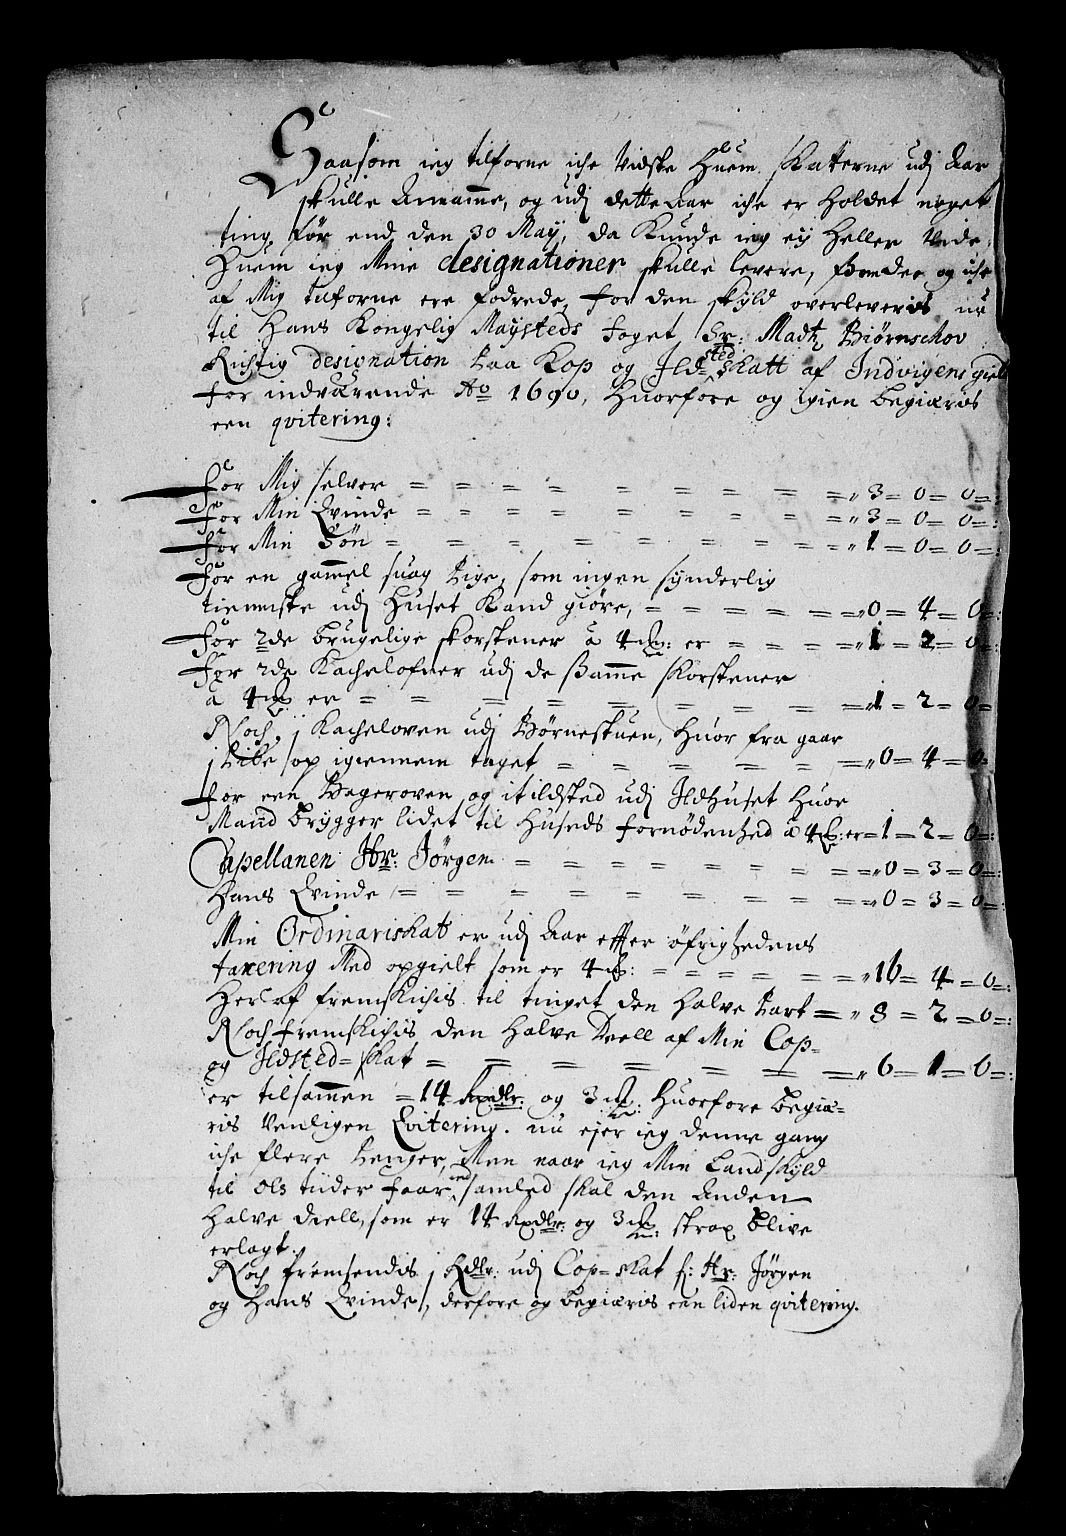 Saasom ieg tilforne iche vidste Huem Skaterne udj Aar
skulle Anamme, og udj dette Aar iche er holdet noget
ting, før end den 30 May, da Kunde ieg ey heller vide
Huem ieg Mine designationer skulle levere, og iche
af Mig tilforne ere fodrede, for den skyld overleveris nu
til Hans Kongelig Maysteds foget, Sr: Madtz Biørnschov
Richtig designation paa Kop og Ildsted skatt af Indvigens gield
for indværende Ao 1690, Huorføre og igien begiæris
een qvitering:
For Mig selver = = = = = = = = = = = „ 3 = 0 = 0 =:
For Min Qvinde = = = = = = = = = = „ 3 = 0 = 0 =:
For Min Søn = = = = = = = = = „ 1 = 0 = 0 =:
For en gammel suag Pige, som ingen synderlig
tienniste udj Huset Kand giøre, = = = = = = „ 0 = 4 = 0 =:
For 2de brugelige skorstener à 4 mk: er = = = = „ 1 = 2 = 0 =:
For 2de Kachelofner udj de samme skorstener
à 4 mk er = = = = = = = = = = „ 1 = 2 = 0 =
Noch, j Kacheloven udj Børnestuen, Huor fra gaar
j Pibe op igiennem taget = = = = = = = „ 0 = 4 = 0 =
For een Bageroven og it ildsted udj Ildhuset huor
Mand brygger lidet til Huseds fornødenhed à 4 mk: er = 1 = 2 = 0 =:
Capellanen Hr: Jørgen = = = = = = = = = „ 0 = 3 = 0 =:
Hans Qvinde = = = = = = = = = = „ 0 = 3 = 0 =:
Min Ordinariskat er udj Aar effter øfrighedens
taxering Med opgielt som er 4 mk: = = = = = = „ 16 = 4 = 0 =:
Her af fremskichis til tinget den halve Part = „ 8 = 2 = 0 =:
Noch fremskichis den halve Deell af Min Cop=
og Ildsted=skat = = = = = = = = „ 6 = 1 = 0 =:
er tilsammen = 14 Rixdlr: og 3 mk: Huorfore begiæ=
ris venligen Qvitering. nu ejer ieg denne gang
iche flere Penger, Men naar ieg Min Landskyld
til Ols tider faar ind samled skal den Anden
halve Deell, som er 14 Rixdlr: og 3 mk: strax blive
erlagt.
Noch fremsendis j Rdlr: udj Cop=skat f: Hr: Jørgen
og Hans Qvinde, derfore og begiæris een liden qvitering.